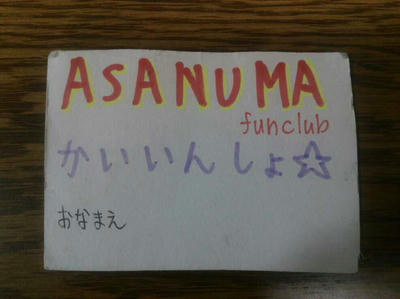 ASANUMA
funclub
かいいんしょ☆
おなまえ